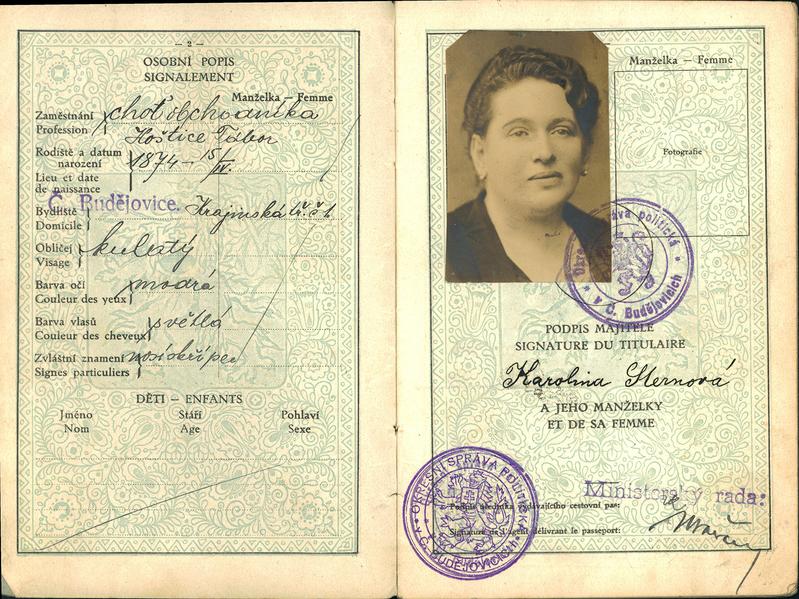 — 2 —
OSOBNÍ POPIS
SIGNALEMENT
Manželka — Femme
Zaměstnání choť obchodníka
Profession
Rodiště a datum narození Hoštice Tábor
1874 – 15/IV.
Lieu et date de naissance
Č. Budějovice.
Bydliště Krajinská tř. č
Domicile
Obličej kulatý
Visage
Barva očí modrá
Couleur des yeux
Barva vlasů světlá
Couleur des cheveux
Zvláštní znamení nosí skřipec
Signes particuliers
DĚTI — ENFANTS
Jméno Stáří Pohlaví
Nom Age Sexe
Manželka — Femme
Fotografie
správa politická
v Č. Budějovicích
PODPIS MAJITELE
SIGNATURE DU TITULAIRE
Karolina Sternová
A JEHO MANŽELKY
ET DE SA FEMME
OKRESNÍ SPRÁVA POLITICKÁ
V Č. BUDĚJOVICÍCH
Ministerský rada:
Podpis úředníka vydávajícího cestovní pas:
Signature de l'agent délivrant le passeport: